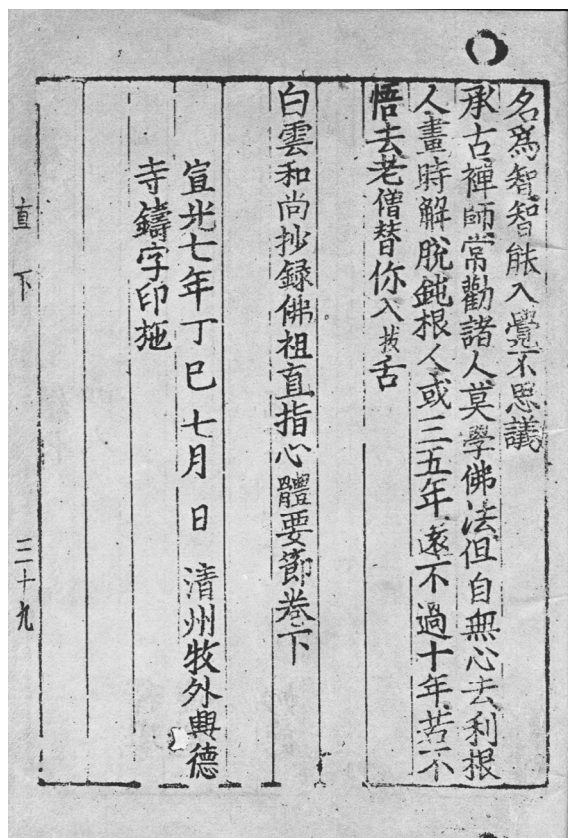 名爲智智能入覺不思議
承古禪師常勸諸人莫學佛法但自無心去利根
人晝時解脫鈍根人或三五年遠不過十年若不
悟去老僧替你入拔舌
白雲和尙抄錄佛祖直指心體要節卷下
宣光七年丁巳七月 日 清州牧外興德
寺鑄字印施
直下
三十九